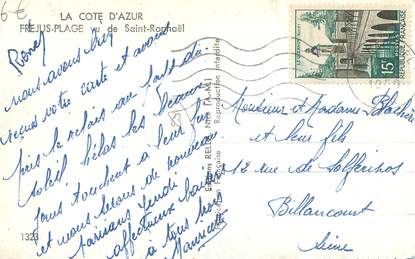 6€
LA COTE D'AZUR
FREJUS-PLAGE vu de Saint-Raphaël
René
nous avons bien
reçus votre carte et avant
pris le relais au bord du
soleil hélas les beaux
jours touchent à leur fin
et nous serons de nouveau
parisiens Jeudi
affectueux baisers
à tous
1323
Editions RELLA, Nice (A.-M.)
Reproduction interdite
Fabrication Française
15F
REPUBLIQUE FRANÇAISE
Monsieur et Madame
et leur fils
12 rue de Solférinos
Billancourt
Seine